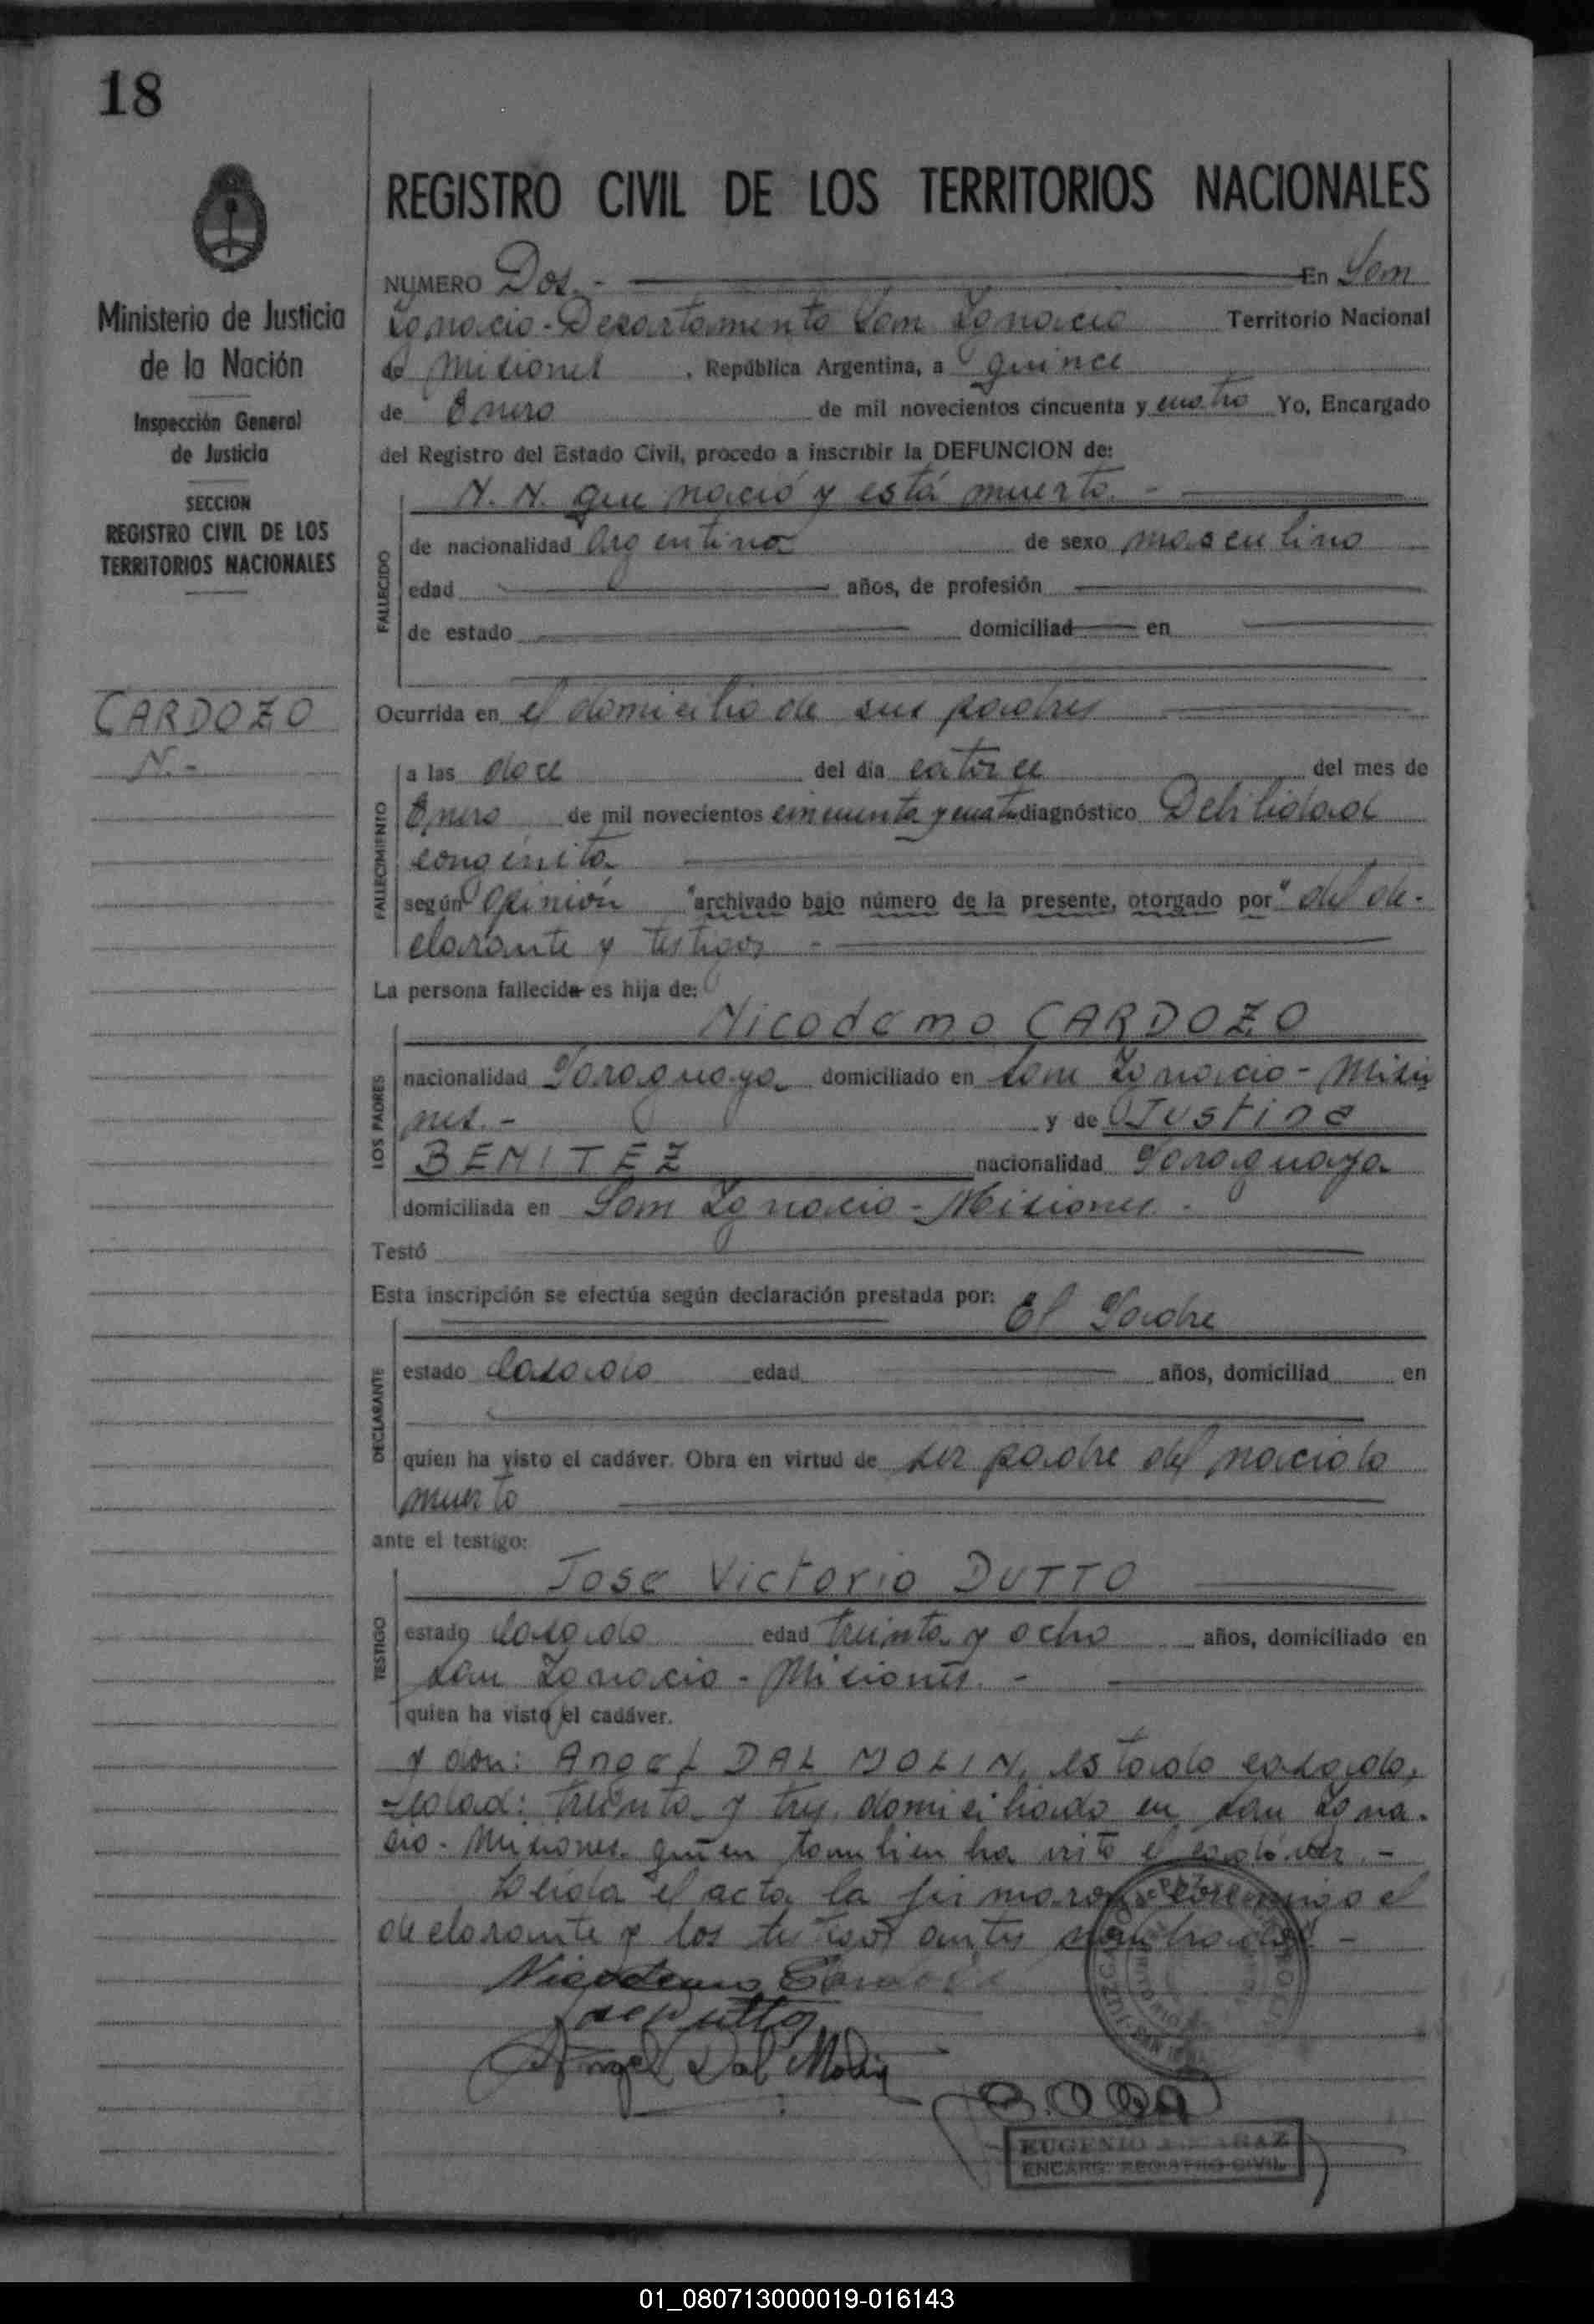 18
Ministerio de Justicia
de la Nación
Inspección General
de Justicia
SECCION
REGISTRO CIVIL DE LOS
TERRITORIOS NACIONALES
CARDOZO
N.-
REGISTRO CIVIL DE LOS TERRITORIOS NACIONALES
NUMERO Dos.- En San
Ignacio-Departamento San Ignacio Territorio Nacional
de Misiones, República Argentina, a quince
de Enero de mil novecientos cincuenta y cuatro Yo, Encargado
del Registro del Estado Civil, procedo a inscribir la DEFUNCION de:
N. N. que nació y está muerto.-
FALLECIDO
de nacionalidad Argentina de sexo masculino
edad años, de profesión
de estado domiciliad en
Ocurrida en el domicilio de sus padres
FALLECIMIENTO
a las doce del día catorce del mes de
Enero de mil novecientos cincuenta y cuatro diagnóstico Debilidad
congénita
según opinión "archivado bajo número de la presente, otorgado por" del de-
clarante y testigos -
La persona fallecida es hija de:
LOS PADRES
Nicodemo CARDOZO
nacionalidad Paraguaya domiciliado en San Ignacio - Misio
nes.- y de Justina
BENITEZ nacionalidad Paraguaya
domiciliada en San Ignacio - Misiones.
Testó
Esta inscripción se efectúa según declaración prestada por: El Padre
DECLARANTE
estado casado edad años, domiciliad en
quien ha visto el cadáver. Obra en virtud de ser padre del nacido
muerto
ante el testigo:
TESTIGO
Jose Victorio DUTTO
estado casado edad treinta y ocho años, domiciliado en
San Ignacio - Misiones. -
quien ha visto el cadáver.
y don: Angel DAL MOLIN, estado casado,
edad: treinta y tres, domiciliado en San Igna-
cio - Misiones quien tambien ha visto el cadáver.-
Leída el acta la firmaron conmigo el
declarante y los testigos antes nombrados -
Nicodemo Cardozo
Jose Dutto
Angel Dal Molin
EUGENIO
ENCARG. REGISTRO CIVIL
01_080713000019-016143